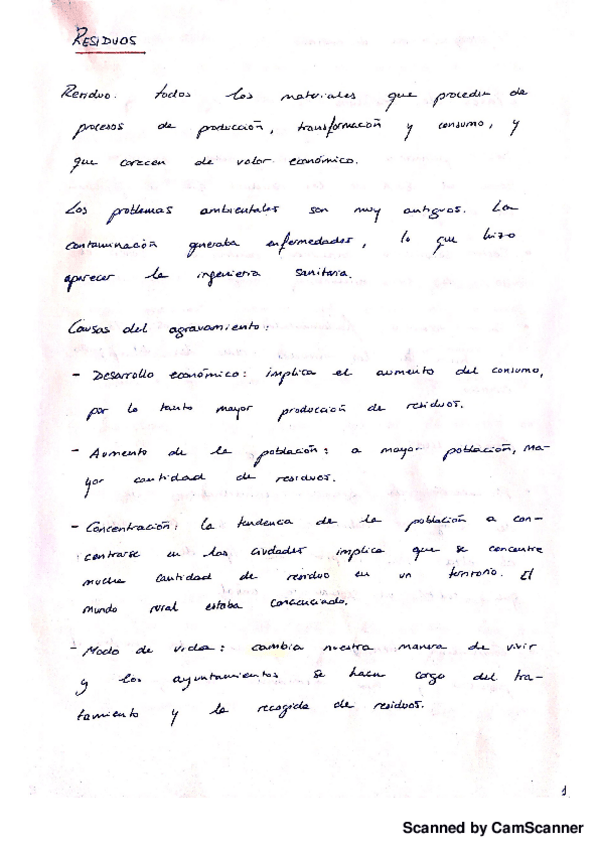 RESIDUOS
Residuo: todos los materiales que proceden de
procesos de producción, transformación y consumo, y
que carecen de valor económico.
Los problemas ambientales son muy antiguos. La
contaminación generaba enfermedades, lo que hizo
aparecer la ingenieria sanitaria.
Causas del agravamiento:
- Desarrollo económico: implica el aumento del consumo,
por lo tanto mayor producción de residuos.
- Aumento de la población: a mayor población, ma-
yor cantidad de residuos.
- Concentración: la tendencia de la población a con-
centrarse en las ciudades implica que se concentre
mucha cantidad de residuo en un territorio. El
mundo rural estaba concienciado.
- Modo de vida: cambia nuestra manera de vivir
y los ayuntamientos se hacen cargo del tra-
tamiento y la recogida de residuos.
1
Scanned by CamScanner